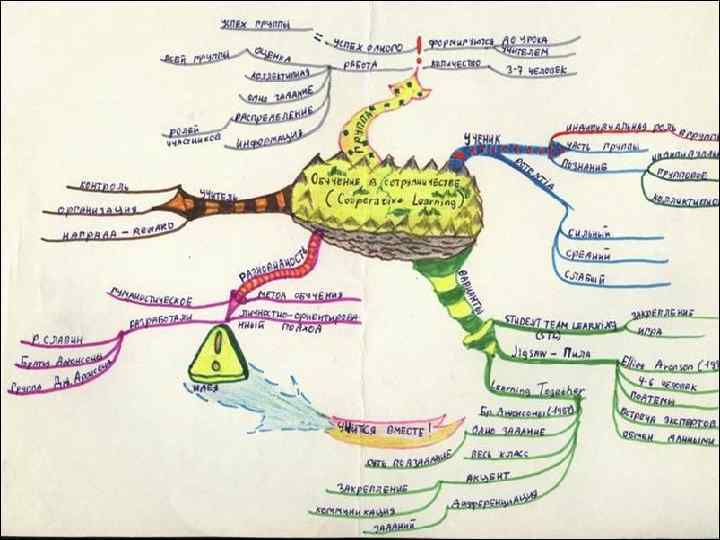 Обучение в сотрудничестве
(Cooperative Learning)
ГРУППА
УСПЕХ ГРУППЫ
=
УСПЕХ ОДНОГО
ФОРМИРУЮТСЯ
ДО УРОКА
УЧИТЕЛЕМ
КОЛИЧЕСТВО
3-7 ЧЕЛОВЕК
РАБОТА
ОЦЕНКА
ВСЕЙ ГРУППЫ
КОЛЛЕКТИВНАЯ
ОДНО ЗАДАНИЕ
РАСПРЕДЕЛЕНИЕ
РОЛЕЙ
УЧАСТНИКОВ
ИНФОРМАЦИЯ
УЧЕНИК
ИНДИВИДУАЛЬНАЯ РОЛЬ В ГРУППЕ
ЧАСТЬ ГРУППЫ
ПОЗНАНИЕ
ГРУППОВОЕ
КОЛЛЕКТИВНОЕ
POTENTIA
СИЛЬНЫЙ
СРЕДНИЙ
СЛАБЫЙ
УЧИТЕЛЬ
КОНТРОЛЬ
ОРГАНИЗАЦИЯ
НАГРАДА - REWARD
РАЗНОВИДНОСТЬ
ГУМАНИСТИЧЕСКОЕ
МЕТОД ОБУЧЕНИЯ
ЛИЧНОСТНО-ОРИЕНТИРОВАН
НЫЙ ПОДХОД
РАЗРАБОТАЛИ
Р. СЛАВИН
Братья Джонсоны
Группа Дж. Аронсона
ИДЕЯ
УЧИТСЯ ВМЕСТЕ!
ВАРИАНТЫ
STUDENT TEAM LEARNING
ЗАКРЕПЛЕНИЕ
ИГРА
JIGSAW - ПИЛА
Elliot Aronson (19
4-6 ЧЕЛОВЕК
ПОДТЕМЫ
ВСТРЕЧА ЭКСПЕРТОВ
ОБМЕН ДАННЫМИ
Learning Together
Бр. Джонсоны (1987)
ОДНО ЗАДАНИЕ
ВЕСЬ КЛАСС
АКЦЕНТ
ЗАКРЕПЛЕНИЕ
КОММУНИКАЦИЯ
ДИФФЕРЕНЦИАЦИЯ
ЗАДАНИЙ